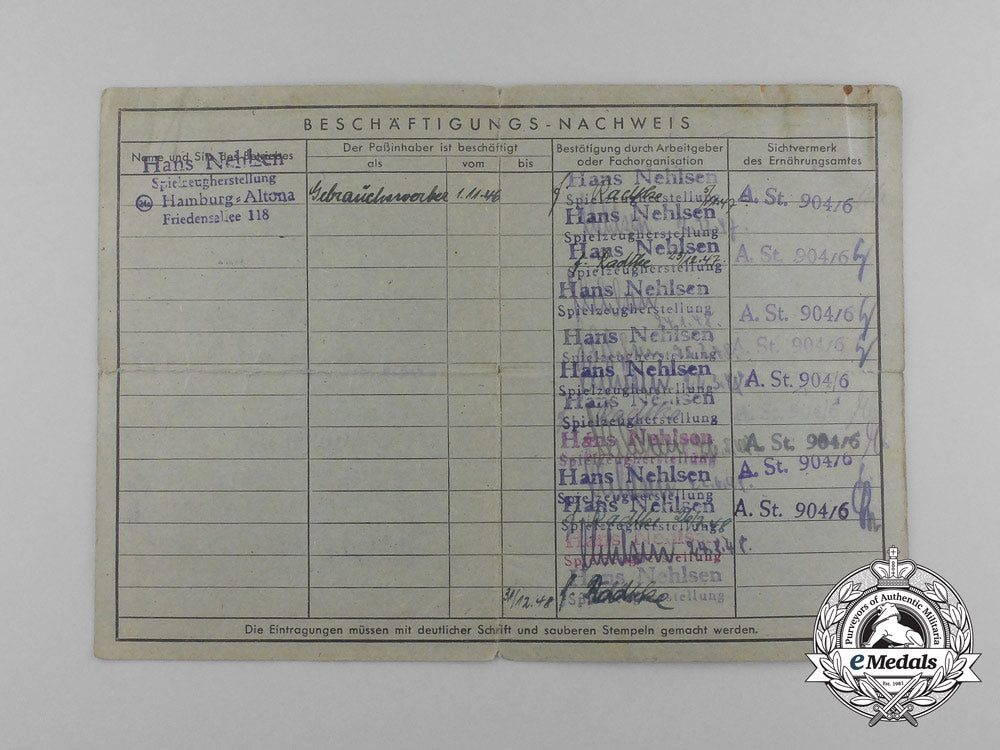 BESCHÄFTIGUNGS-NACHWEIS
Name und Sitz des Betriebes
Der Paßinhaber ist beschäftigt
als vom bis
Bestätigung durch Arbeitgeber
oder Fachorganisation
Sichtvermerk
des Ernährungsamtes
Hans Nehlsen
Spielzeugherstellung
24a Hamburg-Altona
Friedensallee 118
1.11.46
Hans Nehlsen
Radtke
Spielzeugherstellung
A. St. 904/6
Hans Nehlsen
Spielzeugherstellung
Hans Nehlsen
Radtke 23/12.47.
Spielzeugherstellung
A. St. 904/6
Hans Nehlsen
Spielzeugherstellung
A. St. 904/6
Hans Nehlsen
Spielzeugherstellung
A. St. 904/6
Hans Nehlsen
Spielzeugherstellung
A. St. 904/6
Hans Nehlsen
Spielzeugherstellung
Hans Nehlsen
Spielzeugherstellung
A. St. 904/6
Hans Nehlsen
Spielzeugherstellung
A. St. 904/6
Hans Nehlsen
Radtke
Spielzeugherstellung
A. St. 904/6
Hans Nehlsen
Spielzeugherstellung
Hans Nehlsen
31/12.48 Radtke
Spielzeugherstellung
Die Eintragungen müssen mit deutlicher Schrift und sauberen Stempeln gemacht werden.
Purveyors of Authentic Militaria
eMedals
Est. 1981